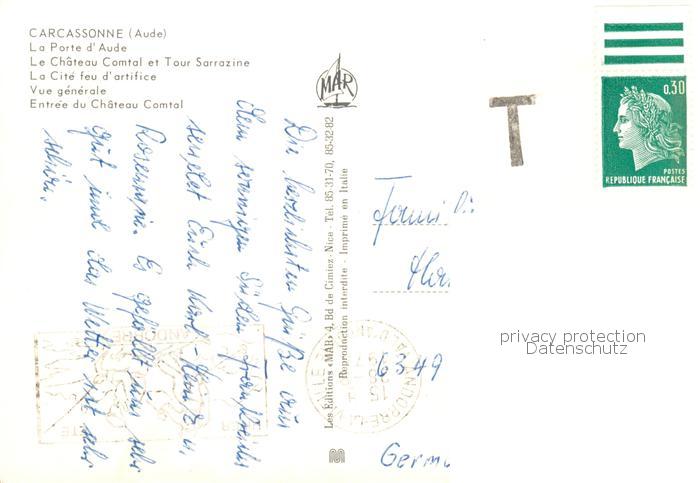 CARCASSONNE (Aude)
La Porte d'Aude
Le Château Comtal et Tour Sarrazine
La Cité feu d'artifice
Vue générale
Entrée du Château Comtal
MAR
Die herzlichsten Grüße aus
dem sonnigen Süden Frankreichs
sendet Euch Karl-Heinz u.
Rosemarie. Es gefällt uns sehr
gut und das Wetter ist sehr
schön.
Les Editions «MAR» 4, Bd de Cimiez - Nice - Tél. 85-31-70, 85-32-82
Reproduction interdite - Imprimé en Italie
T
0,30
POSTES
REPUBLIQUE FRANÇAISE
6349
privacy protection
Datenschutz